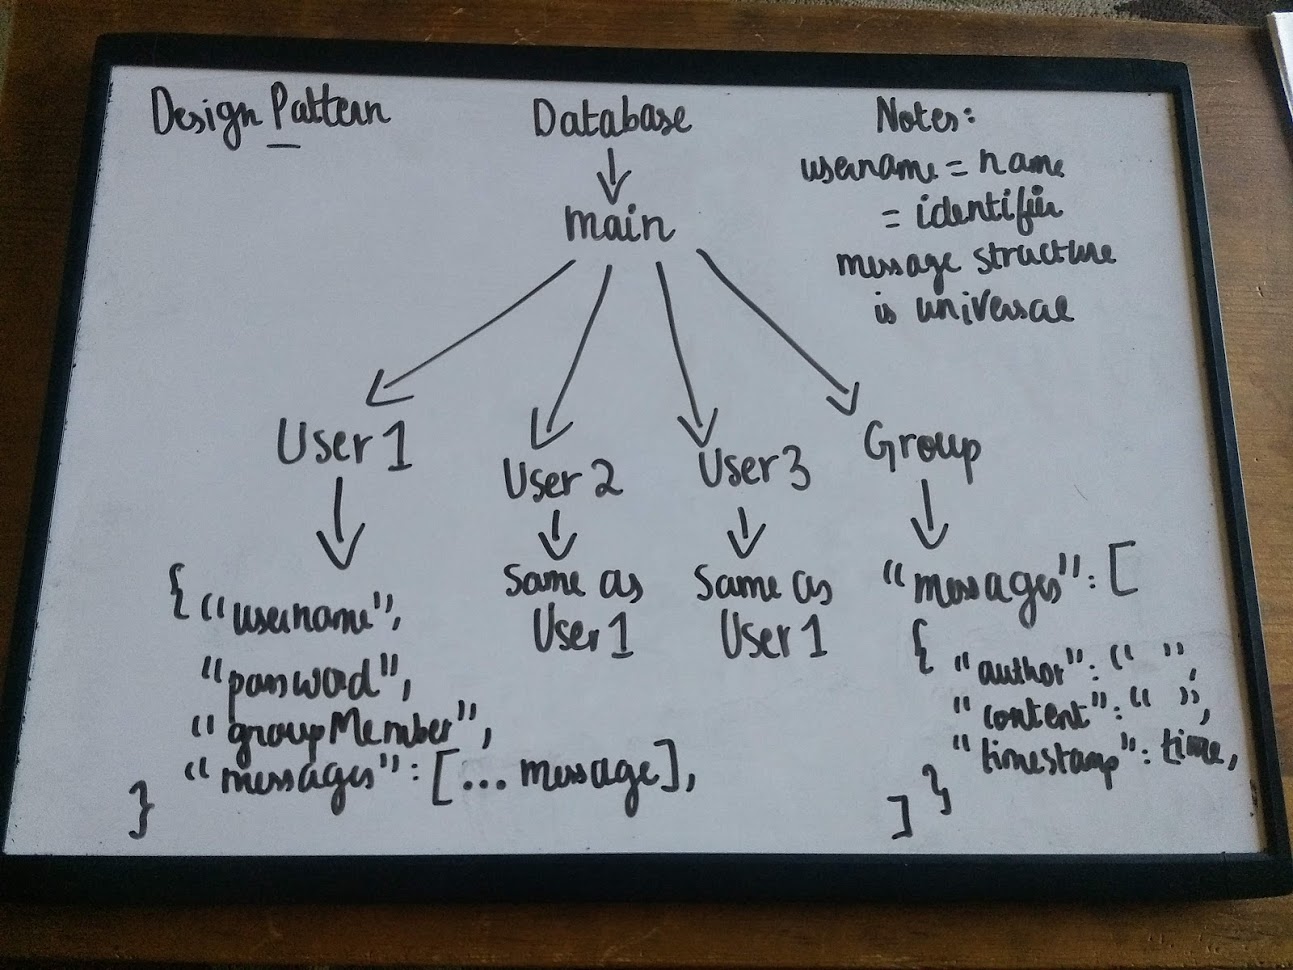 Design Pattern
Database
main
Notes:
username = name
= identifier
message structure
is universal
User 1
User 2
User 3
Group
{ "username",
"password",
"groupMember",
"messages": [... message],
}
Same as
User 1
Same as
User 1
"messages": [
{ "author": " ",
"content": " ",
"timestamp": time,
}
]